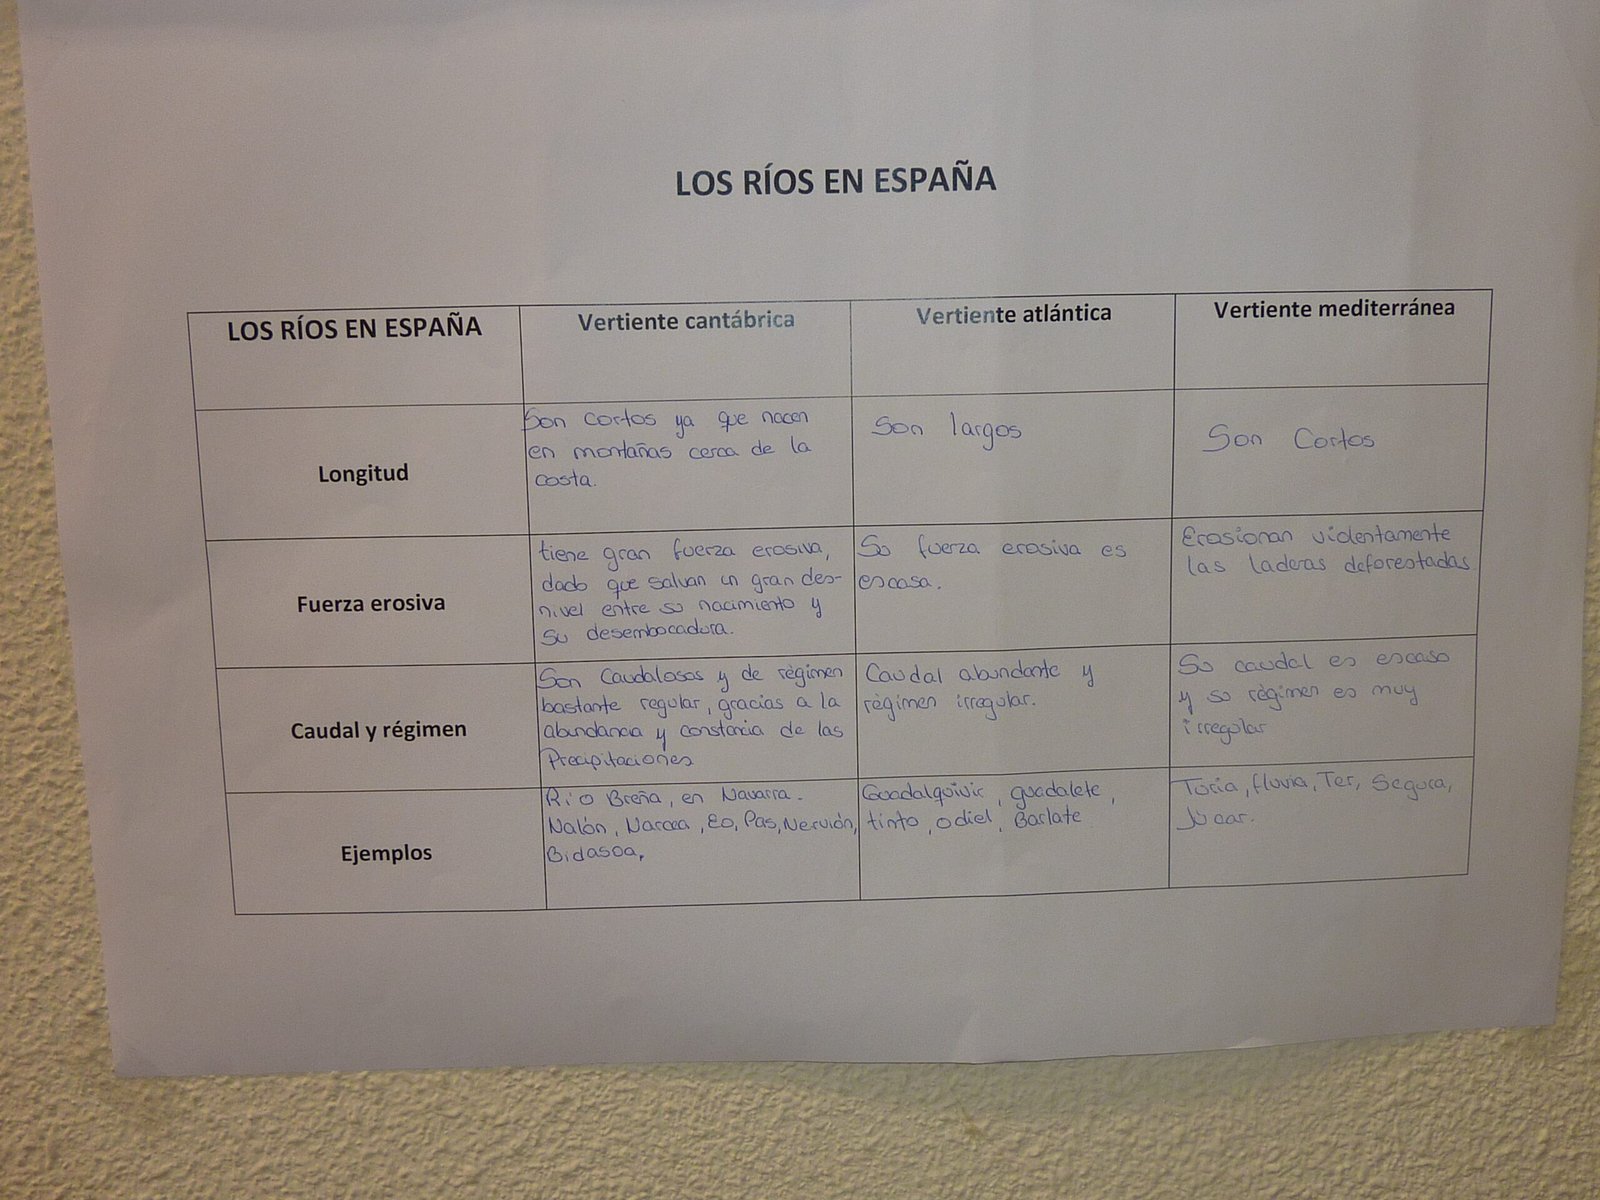 LOS RÍOS EN ESPAÑA
LOS RÍOS EN ESPAÑA
Vertiente cantábrica
Vertiente atlántica
Vertiente mediterránea
Longitud
Son cortos ya que nacen
en montañas cerca de la
costa.
Son largos
Son Cortos
Fuerza erosiva
tiene gran fuerza erosiva,
dado que salvan un gran des-
nivel entre su nacimiento y
su desembocadura.
Su fuerza erosiva es
escasa.
Erosionan violentamente
las laderas deforestadas
Caudal y régimen
Son Caudalosos y de règimen
bastante regular, gracias a la
abundancia y constancia de las
Precipitaciones
Caudal abundante y
règimen irregular.
Su caudal es escaso
y su règimen es muy
irregular
Ejemplos
Río Breña, en Navarra.
Nalón, Narcea, Eo, Pas, Nervión,
Bidasoa,
Guadalquivir, guadalete,
tinto, odiel, Barlate
Turia, fluvia, Ter, Segura,
Júcar.